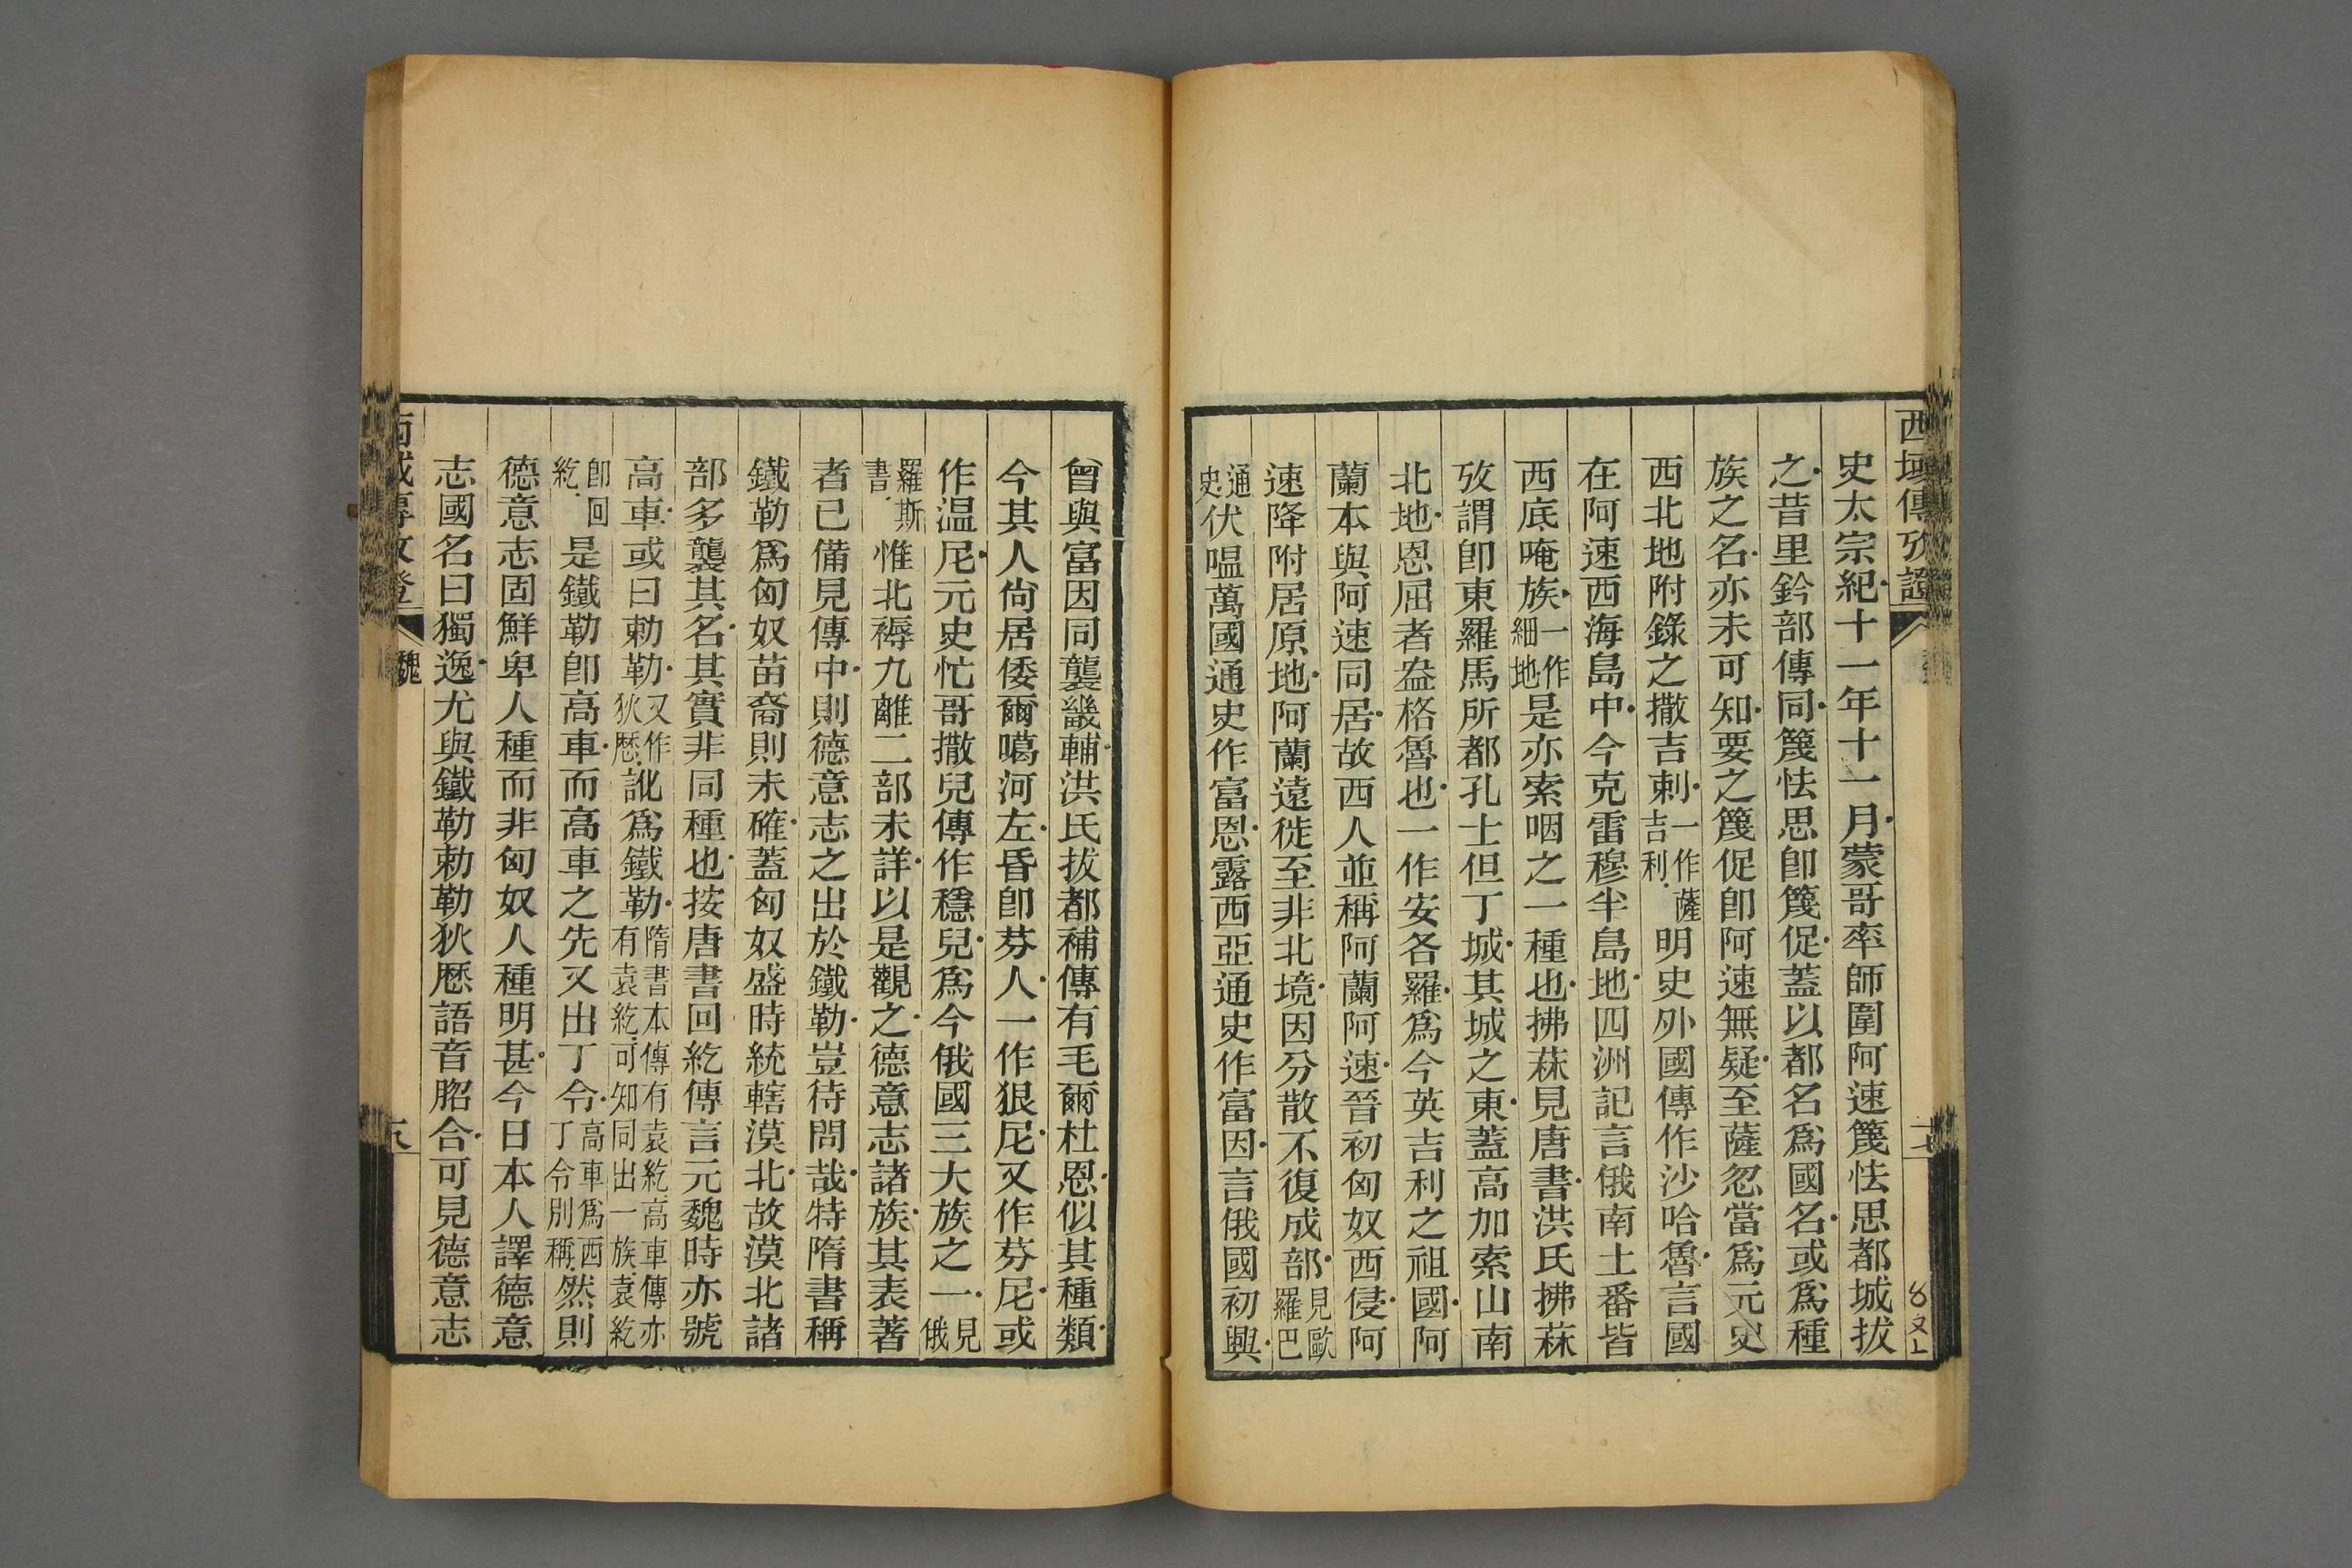 西域傳攷證
史太宗紀十一年十一月蒙哥率師圍阿速篾怯思都城拔
之昔里鈐部傳同篾怯思卽篾促蓋以都名爲國名或爲種
族之名亦未可知要之篾促卽阿速無疑至薩忽當爲元史
西北地附錄之撒吉剌一作薩吉利明史外國傳作沙哈魯言國
在阿速西海島中今克雷穆半島地四洲記言俄南土番皆
西底唵族一作細地是亦索咽之一種也拂菻見唐書洪氏拂菻
攷謂卽東羅馬所都孔士但丁城其城之東蓋高加索山南
北地恩屈者盎格魯也一作安各羅爲今英吉利之祖國阿
蘭本與阿速同居故西人並稱阿蘭阿速晉初匈奴西侵阿
速降附居原地阿蘭遠徙至非北境因分散不復成部見歐羅巴
通史伏嗢萬國通史作富恩露西亞通史作富因言俄國初興
曾與富因同襲畿輔洪氏拔都補傳有毛爾杜恩似其種類
今其人尙居倭爾噶河左昏卽芬人一作狠尼又作芬尼或
作温尼元史忙哥撒兒傳作穩兒爲今俄國三大族之一見俄
羅斯書惟北褥九離二部未詳以是觀之德意志諸族其表著
者已備見傳中則德意志之出於鐵勒豈待問哉特隋書稱
鐵勒爲匈奴苗裔則未確蓋匈奴盛時統轄漠北故漠北諸
部多襲其名其實非同種也按唐書回紇傳言元魏時亦號
高車或曰勅勒又作狄歷訛爲鐵勒隋書本傳有袁紇高車傳亦有袁紇可知同出一族袁紇
卽回紇是鐵勒卽高車而高車之先又出丁令高車爲西丁令別稱然則
德意志固鮮卑人種而非匈奴人種明甚今日本人譯德意
志國名曰獨逸尤與鐵勒勅勒狄歷語音脗合可見德意志
魏